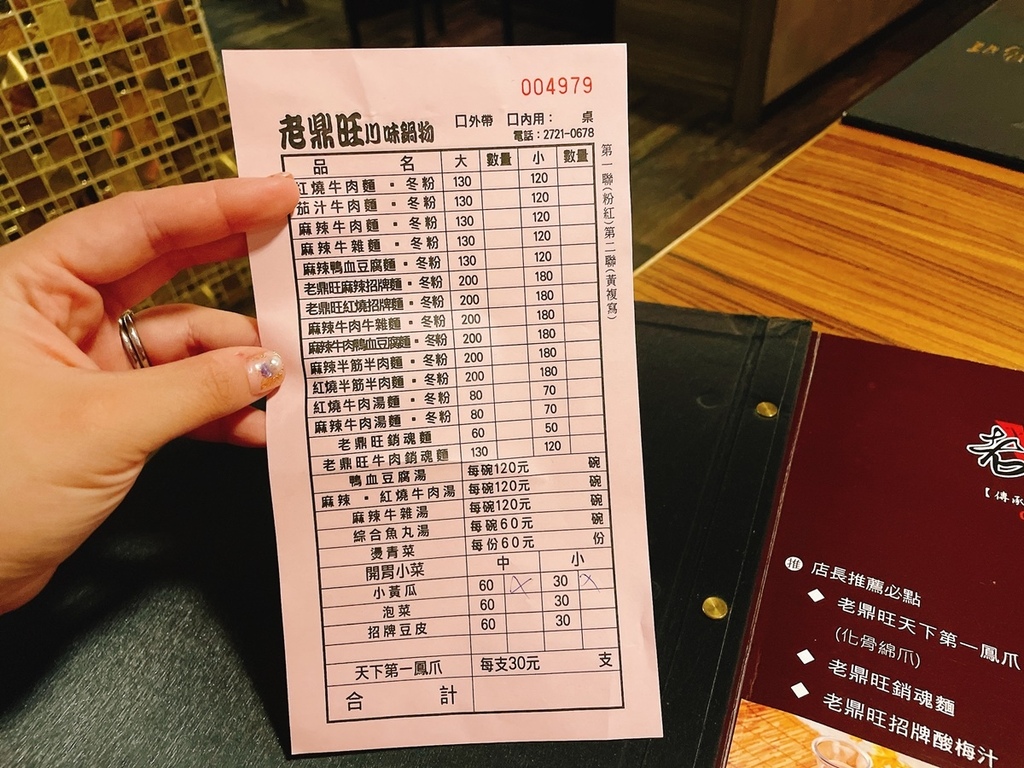 004979
老鼎旺川味鍋物 口外帶 口內用： 桌
電話：2721-0678
品 名 大 數量 小 數量
紅燒牛肉麵▪冬粉 130 120
茄汁牛肉麵▪冬粉 130 120
麻辣牛肉麵▪冬粉 130 120
麻辣牛雜麵▪冬粉 130 120
麻辣鴨血豆腐麵▪冬粉 130 120
老鼎旺麻辣招牌麵▪冬粉 200 180
老鼎旺紅燒招牌麵▪冬粉 200 180
麻辣牛肉牛雜麵▪冬粉 200 180
麻辣牛肉鴨血豆腐麵▪冬粉 200 180
麻辣半筋半肉麵▪冬粉 200 180
紅燒半筋半肉麵▪冬粉 200 180
紅燒牛肉湯麵▪冬粉 80 70
麻辣牛肉湯麵▪冬粉 80 70
老鼎旺銷魂麵 60 50
老鼎旺牛肉銷魂麵 130 120
鴨血豆腐湯 每碗120元 碗
麻辣▪紅燒牛肉湯 每碗120元 碗
麻辣牛雜湯 每碗120元 碗
綜合魚丸湯 每碗60元 碗
燙青菜 每份60元 份
開胃小菜 中 小
小黃瓜 60 X 30 X
泡菜 60 30
招牌豆皮 60 30
天下第一鳳爪 每支30元 支
合 計
第一聯(粉紅)第二聯(黃複寫)
【傳
推 店長推薦必點
老鼎旺天下第一鳳爪
(化骨綿爪)
老鼎旺銷魂麵
老鼎旺招牌酸梅汁